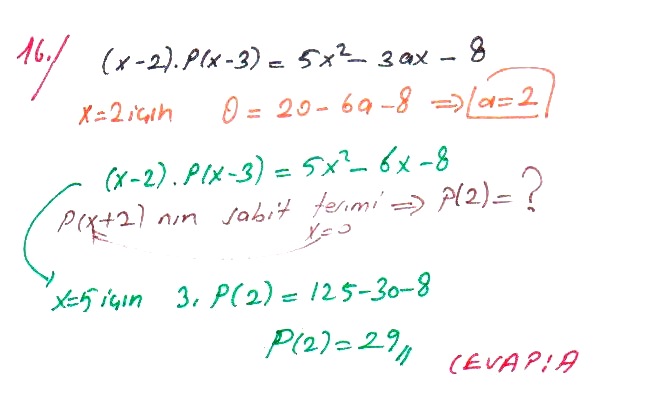 16./ (x-2).P(x-3) = 5x² - 3ax - 8
x=2 için 0 = 20 - 6a - 8 ⇒ a=2
(x-2).P(x-3) = 5x² - 6x - 8
P(x+2) nin sabit terimi ⇒ P(2) = ?
x=0
x=5 için 3. P(2) = 125-30-8
P(2) = 29//
CEVAP: A